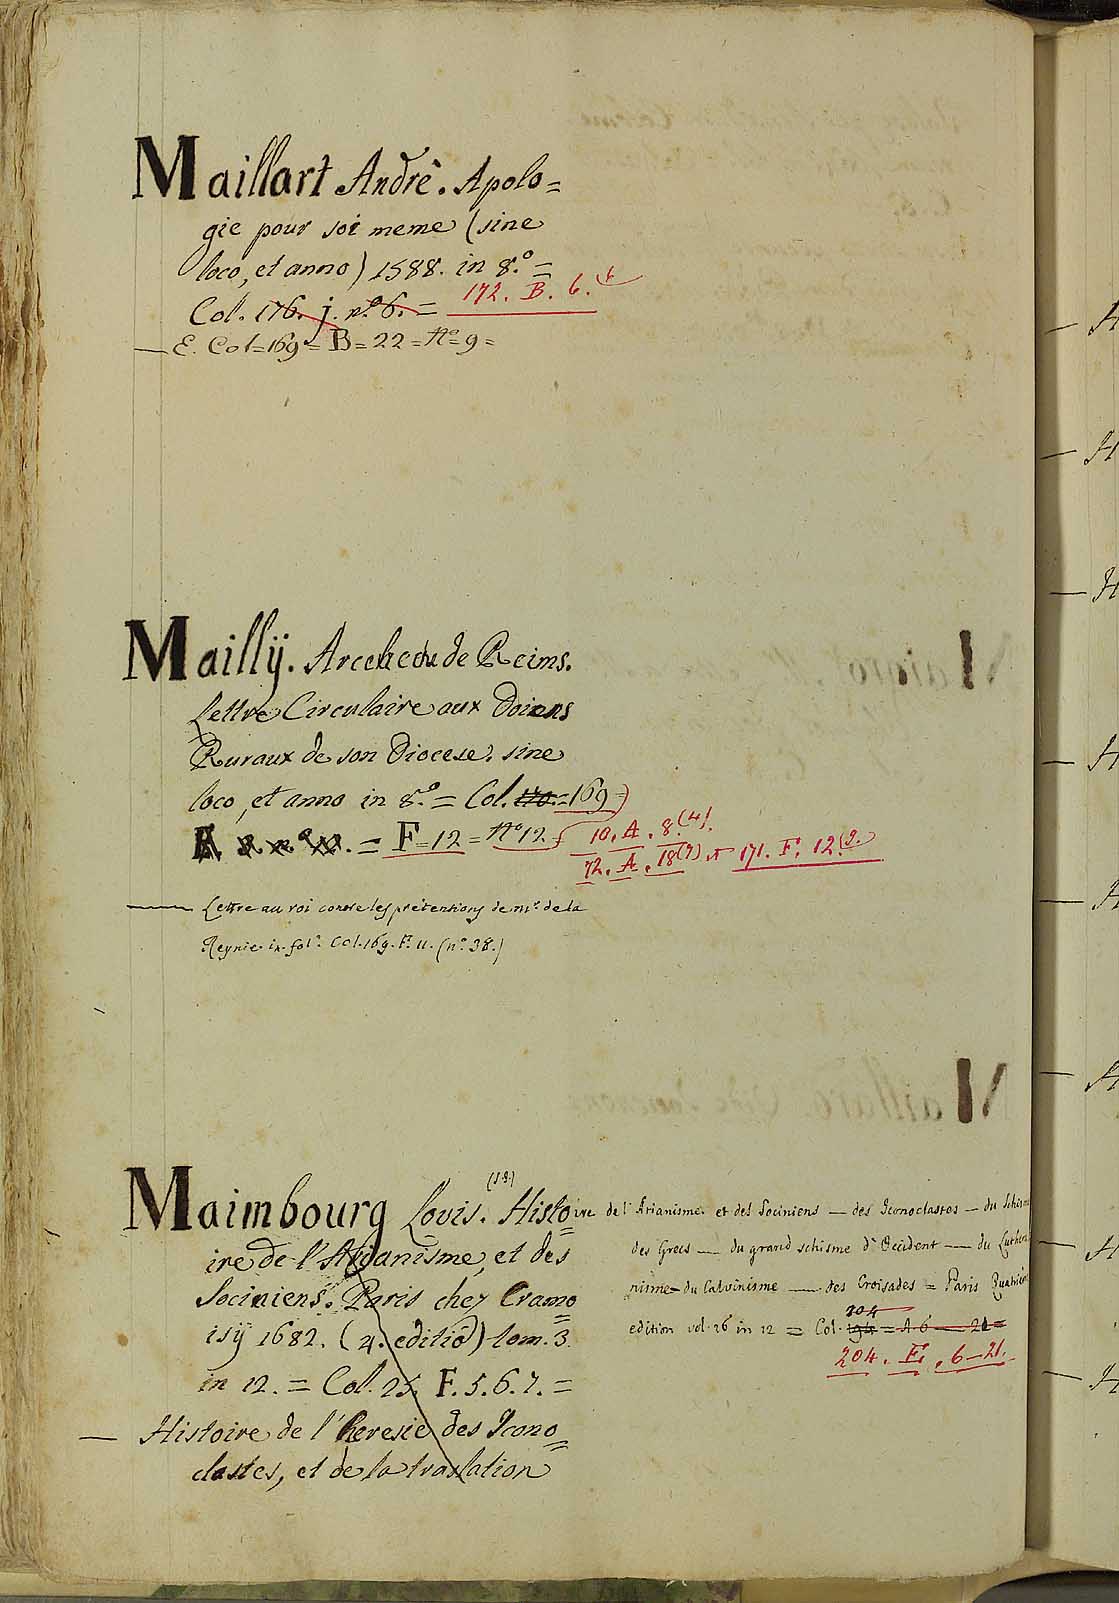 Maillart Andrê. Apolo=
gie pour soi meme (sine
loco, et anno) 1588. in 8.° =
Col. 176. j. n.° 6. = 172. B. 6.
— E. Col=169= B=22=N°=9=
Mailly. de Reims.
Lettre Circulaire aux Doiens
Ruraux de son Diocese. sine
loco, et anno in 8.° = Col. 170.=169=
= F=12=N°12= 10. A. 8.(4).
72. A. 18(7) et 171. F. 12.(2.)
— Lettre au roi contre les prétentions de mr. de la
Reynie in fol°. Col. 169. F. 11. (n°. 38.)
(S.J.)
Maimbourg Lovis. Histo
ire de l'Arianisme, et des
Sociniens. Paris chez Cramo
isÿ 1682. (4. editiō) tom. 3.
in 12. = Col. 25. F. 5. 6. 7. =
— Histoire de l'heresie des Icono
clastes, et de la traslation
ire de l'Arianisme. et des Sociniens — des Iconoclastes — du Schism
des Grecs — du grand schisme d'Occident — du Luthera
nisme — du Calvinisme — des Croisades = Paris Quatriem
204
edition vol. 26 in 12 = Col. 194 = A. 6 — 21 =
204. E. , 6–21.